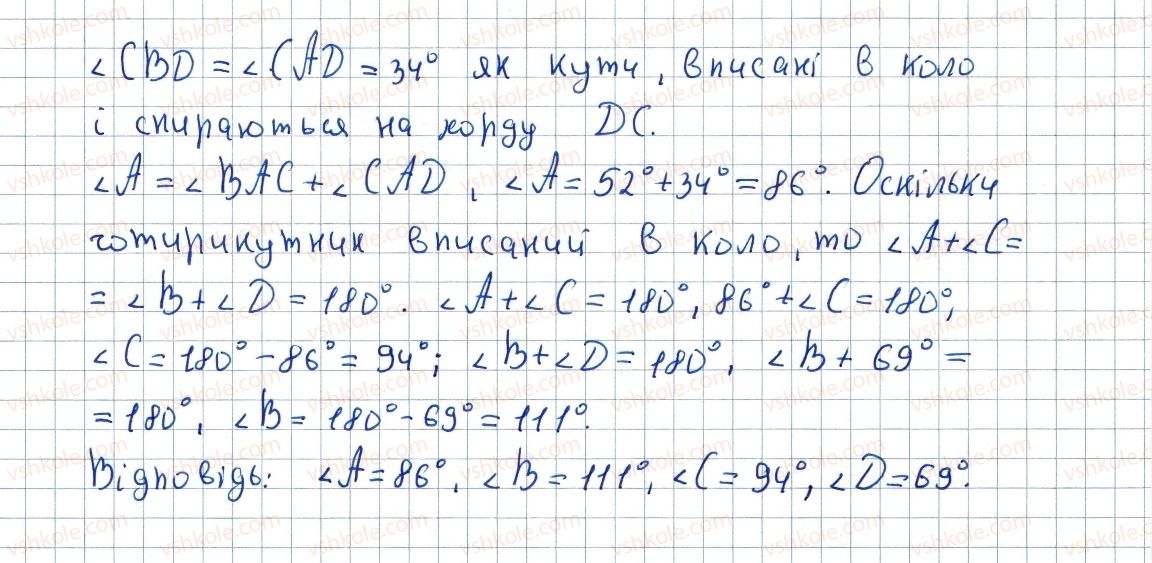 ∠CBD = ∠CAD = 34° як кути, вписані в коло
і спираються на хорду DC.
∠A = ∠BAC + ∠CAD, ∠A = 52° + 34° = 86°. Оскільки
чотирикутник вписаний в коло, то ∠A + ∠C =
= ∠B + ∠D = 180°. ∠A + ∠C = 180°, 86° + ∠C = 180°,
∠C = 180° - 86° = 94°; ∠B + ∠D = 180°, ∠B + 69° =
= 180°, ∠B = 180° - 69° = 111°.
Відповідь: ∠A = 86°, ∠B = 111°, ∠C = 94°, ∠D = 69°.
vshkole.com